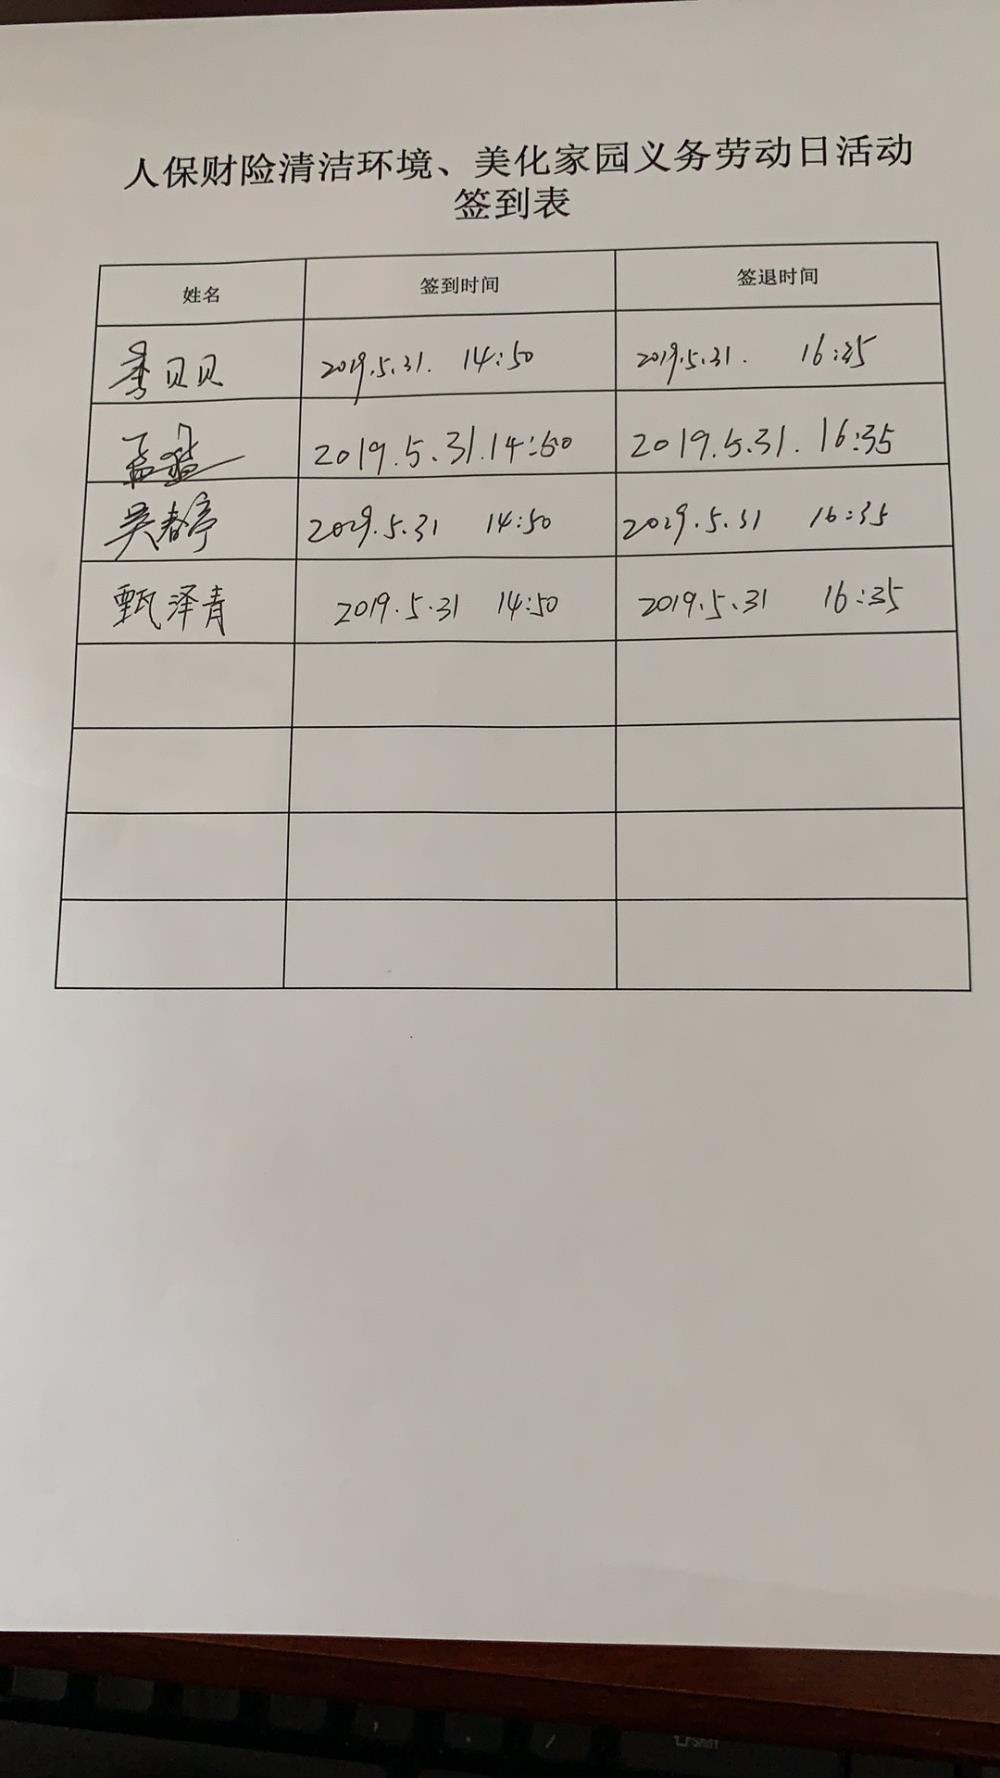 人保财险清洁环境、美化家园义务劳动日活动
签到表
姓名 签到时间 签退时间
贝贝 2019.5.31. 14:50 2019.5.31. 16:35
孟 2019.5.31.14:50 2019.5.31. 16:35
吴春亭 2019.5.31 14:50 2019.5.31 16:35
甄泽青 2019.5.31 14:50 2019.5.31 16:35